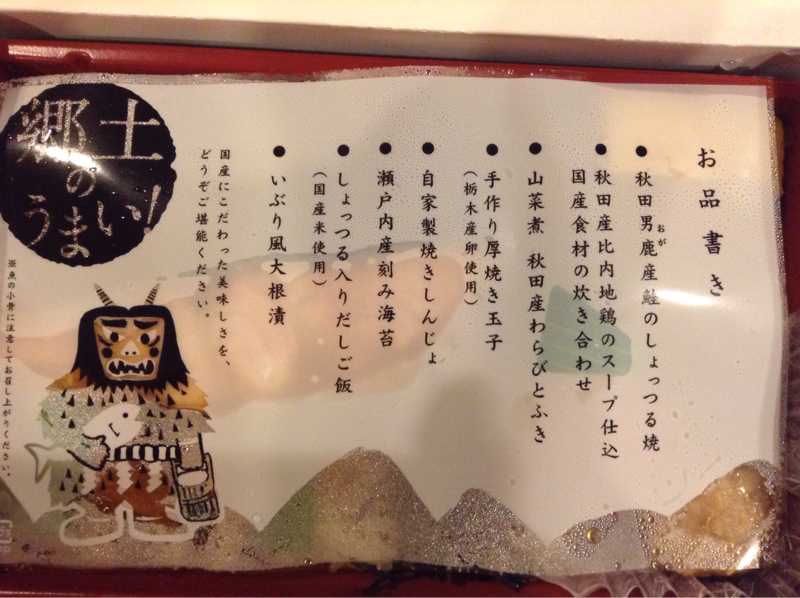 お品書き
● 秋田男鹿産鮭のしょっつる焼
おが
● 秋田産比内地鶏のスープ仕込
国産食材の炊き合わせ
● 山菜煮 秋田産わらびとふき
● 手作り厚焼き玉子
(栃木産卵使用)
● 自家製焼きしんじょ
● 瀬戸内産刻み海苔
● しょっつる入りだしご飯
(国産米使用)
● いぶり風大根漬
国産にこだわった美味しさを、
どうぞご堪能ください。
郷土
の
うまい!
※魚の小骨に注意してお召し上がりください。